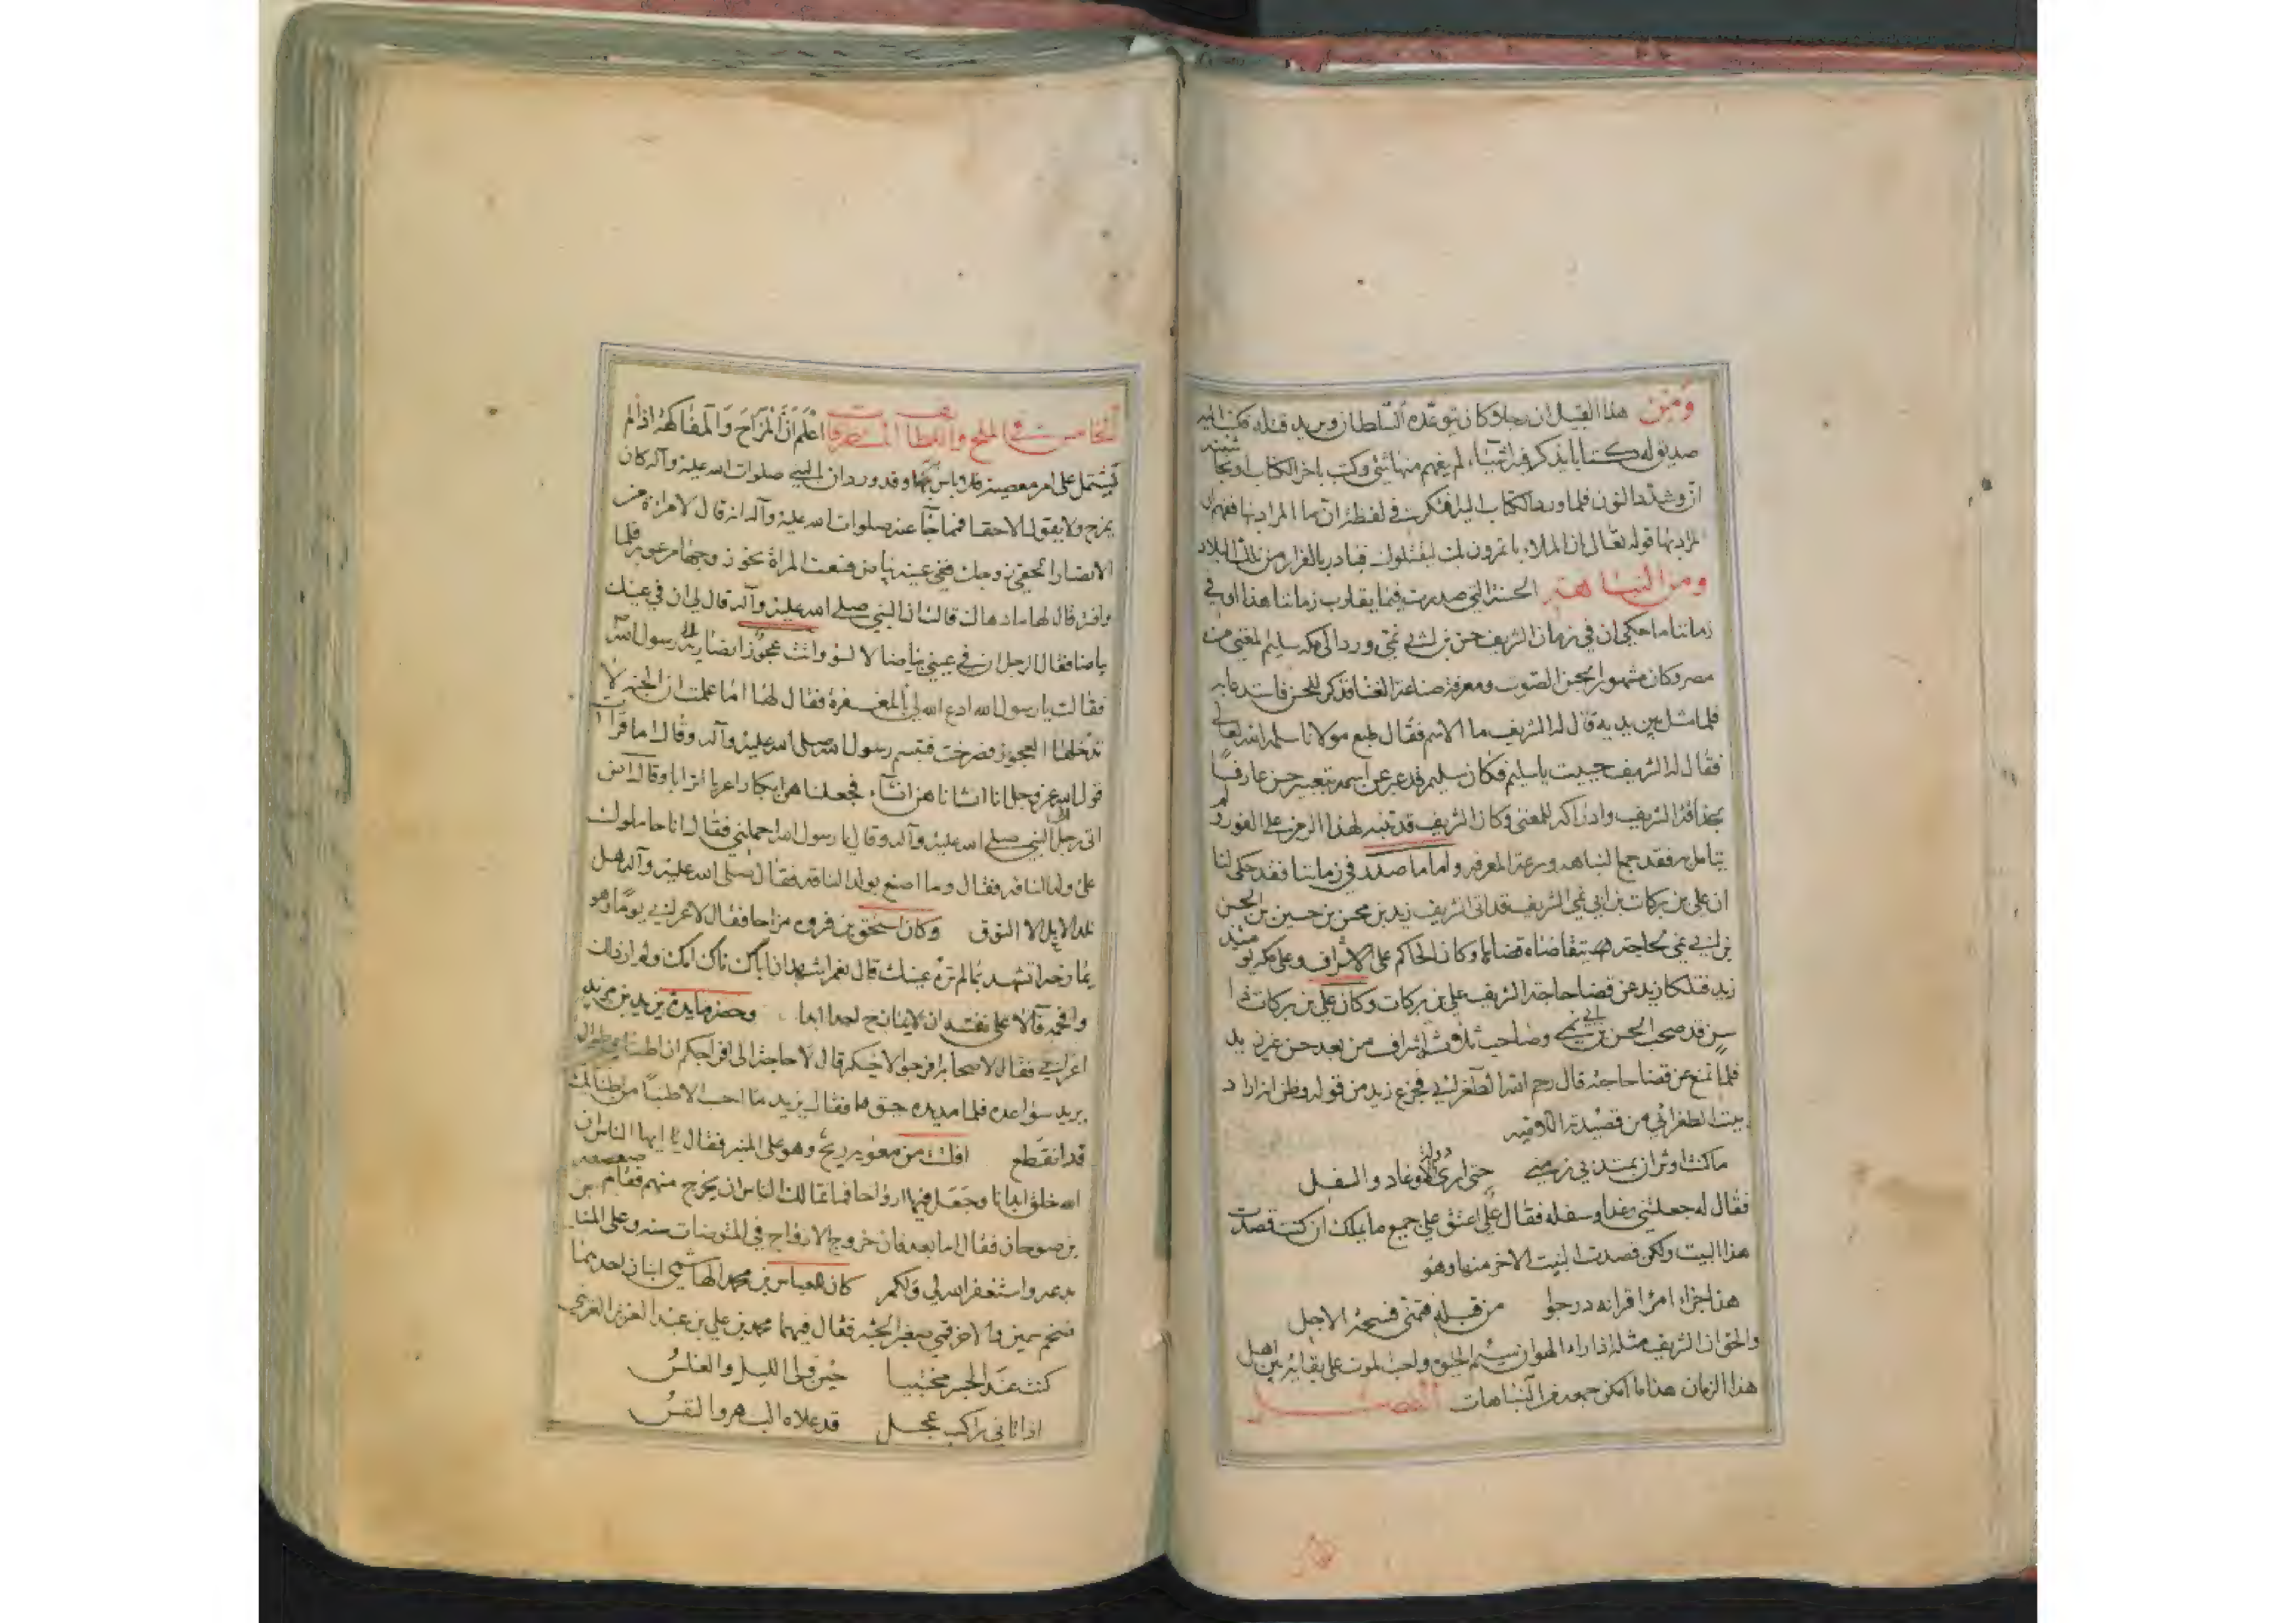 ومن هذا القبيل ان رجلا كان توعده السلطان ويريد قتله فكتب اليه
صديق له كتابا يذكر فيه اشياء لم يفهم منها شئ وكتب باخر الكتاب
ان وشدد النون فلما ورد الكتاب اليه افتكر في لفظة ان ما المراد بها ففهم ان
المراد بها قوله تعالى ان الملاء ياتمرون بك ليقتلوك فبادر بالفرار من تلك البلاد
ومن النباهة الحسنة التي صدرت فيما يقارب زماننا هذا او في
زماننا ما حكي ان في زمان الشريف حسن بن ابي نمي ورد الى مكه سليم المغني من
مصر وكان مشهورا بحسن الصوت ومعرفة صناعة الغنا فذكر للحسن فاستدعا به
فلما مثل بين يديه قال له الشريف ما الاسم فقال طبع مولانا سلمه الله تعالى
فقال له الشريف حييت يا سليم فكان سليم قد عبر عن اسمه بتعبير حسن عارفا
بحذاقة الشريف وادراكه للمعنى وكان الشريف قد تنبه لهذا الرمز على الفور ولم
يتامل فقد جمع النباهه وسرعة المعرفه واما ما صدر في زماننا فقد حكى لنا
ان علي بن بركات بن ابي نمي الشريف قد اتى الشريف زيد بن محسن بن حسين بن الحسن
بن ابي نمي لحاجة يتقاضاه قضاها وكان الحاكم على الاشراف وعلى مكه يومئذ
زيد فتلكا زيد عن قضا حاجة الشريف علي بن بركات وكان علي بن بركات ذا
سن قد صحب الحسن بن ابي نمي وصاحب ثلاثة اشراف من بعد حسن غير زيد
فلما تمنع عن قضا حاجته قال رحم الله الطغرائي فجزع زيد من قوله وظن انه اراد
بيت الطغرائي من قصيدته اللاميه
ما كنت اوثر ان يمتد بي زمني حتى ارى دولة الاوغاد والسفل
فقال له جعلتني وغدا وسفله فقال علي اعتق علي جميع ما يملك ان كنت قصدت
هذا البيت ولكن قصدت البيت الاخر منها وهو
هذا جزاء امرء اقرانه درجوا من قبله فتمنى فسحة الاجل
والحق ان الشريف مثله اذا راه الهوان سئم الحيوة واحب الموت على بقائه بين اهل
هذا الزمان هذا ما امكن جمعه من النباهات الفصل
الخامس في الملح واللطائف المستظرفات اعلم ان المزاح والمفاكهة اذا لم
يشتمل على امر معصية فلا باس بهما وقد ورد ان النبي صلوات الله عليه وآله كان
يمزح ولا يقول الا حقا فمما جآء عنه صلوات الله عليه وآله انه قال لامراة من
الانصار الحقي زوجك ففي عينه بياض فسعت المراة نحو زوجها مرعوبة فلما
وافته قال لها ما دهاك قالت ان النبي صلى الله عليه وآله قال لي ان في عينك
بياضا فقال الرجل ان في عيني بياضا لا لسوء واتت عجوز انصارية الى رسول الله
فقالت يا رسول الله ادع الله لي بالمغفرة فقال لها اما علمت ان الجنة لا
تدخلها العجوز فصرخت فتبسم رسول الله صلى الله عليه وآله وقال اما قرات
قول الله عز وجل انا انشاناهن انشآء فجعلناهن ابكارا عربا اترابا
اتى رجل النبي صلى الله عليه وآله وقال يا رسول الله احملني فقال انا حاملوك
على ولد الناقه فقال وما اصنع بولد الناقه فقال صلى الله عليه وآله وهل
تلد الابل الا النوق وكان اسحق بن فروه مزاحا فقال لاعرابي يوما وهو
يمازحه اتشهد بما لم تره عينك قال نعم اشهد ان اباك ناك امك ولم ار ذلك
وافحمه فآلا على نفسه ان لا يمازح احدا ابدا وحضر مايدة يزيد بن مزيد
اعرابي فقال لاصحابه افرجوا لاخيكم قال لا حاجة الى افراجكم ان اطنابي طوال
يريد سواعده فلما مد يده ضرط فقال يزيد ما احسب الا طنبا من اطنابك
قد انقطع افلت من معويه ريح وهو على المنبر فقال يا ايها الناس ان
الله خلق ابدانا وجعل فيها ارواحا فما تمالك الناس ان يخرج منهم فقام صعصعه
بن صوحان فقال اما بعد فان خروج الارواح في المتوضات سنه وعلى المنابر
بدعه واستغفر الله لي ولكم كان للعباس بن محمد الهاشمي ابنان احدهما
ضخم سمين والاخر قمي صغير الجثه فقال فيهما محمد بن علي بن عبد العزيز
كنت عند الجسر محتبيا حين ولى الليل والغلس
اذ اتاني راكب عجل قد علاه البهر والنفس